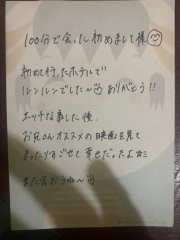 100分で会いに初めまして様
初めて行ったホテルで
ルンルンでした〜 ありがとう!!
エッチな事した後、
お兄さんオススメの映画を見て
まったりすごせて幸せだったよ
また会おうね〜